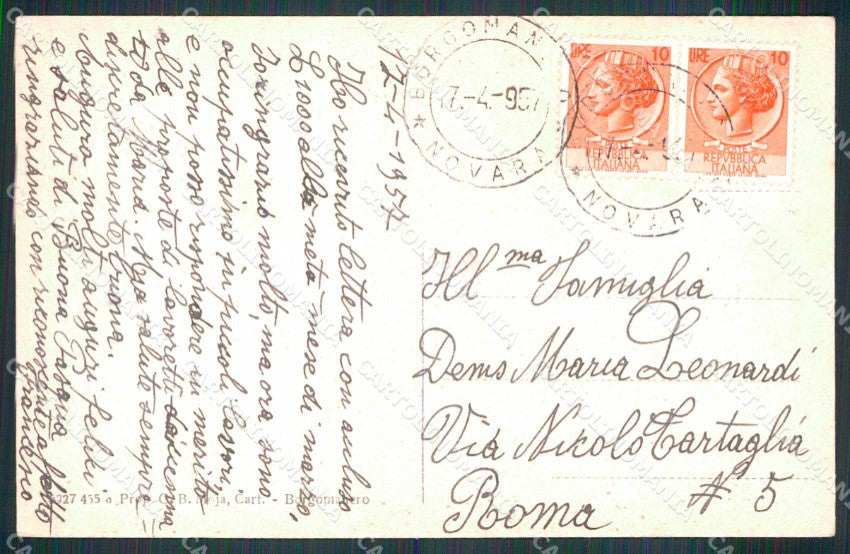 17-4-1957
Ho ricevuto lettera con incluso
£ 1000 alla metà mese di marzo,
La ringrazio molto, ma ora sono
occupatissimo in piccoli lavori,
e non posso rispondere in merito
alle proposte di lavoretti da
da Mad. Mia salute sempre
discretamente buona.
Auguro molti auguri felici
e saluti di Buona Pasqua
ringraziando con riconoscente affetto
BORGOMAN
17.-4.-957
★ NOVARA
LIRE 10
REPVBBLICA
ITALIANA
LIRE 10
POSTE
REPVBBLICA
ITALIANA
★ NOVARA
Ill ma Famiglia
Dems Maria Leonardi
Via Nicolò Tartaglia
N 5
Roma
27 435 a Prop. G. B. Cart. - Borgomanero
CARTOLINOMANIA